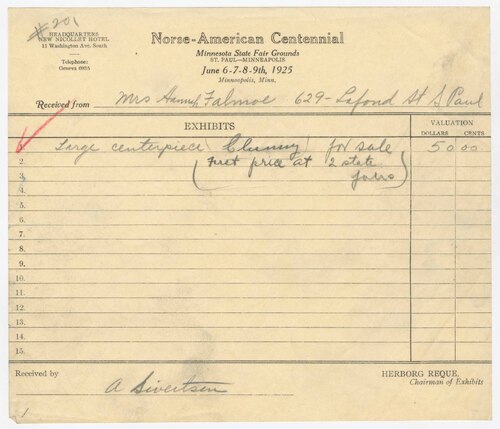 # 201
HEADQUARTERS
NEW NICOLLET HOTEL
11 Washington Ave. South
Telephone:
Geneva 6935
Norse-American Centennial
Minnesota State Fair Grounds
ST. PAUL—MINNEAPOLIS
June 6-7-8-9th, 1925
Minneapolis, Minn.
Received from Mrs Hannah Falmoe 629 - Lafond St S Paul
EXHIBITS
VALUATION
DOLLARS CENTS
1. Large centerpiece Clunny for sale 50 00
2. (First price at 2 state
3. fairs)
4.
5.
6.
7.
8.
9.
10.
11.
12.
13.
14.
15.
Received by
A Sivertsen
HERBORG REQUE,
Chairman of Exhibits
1